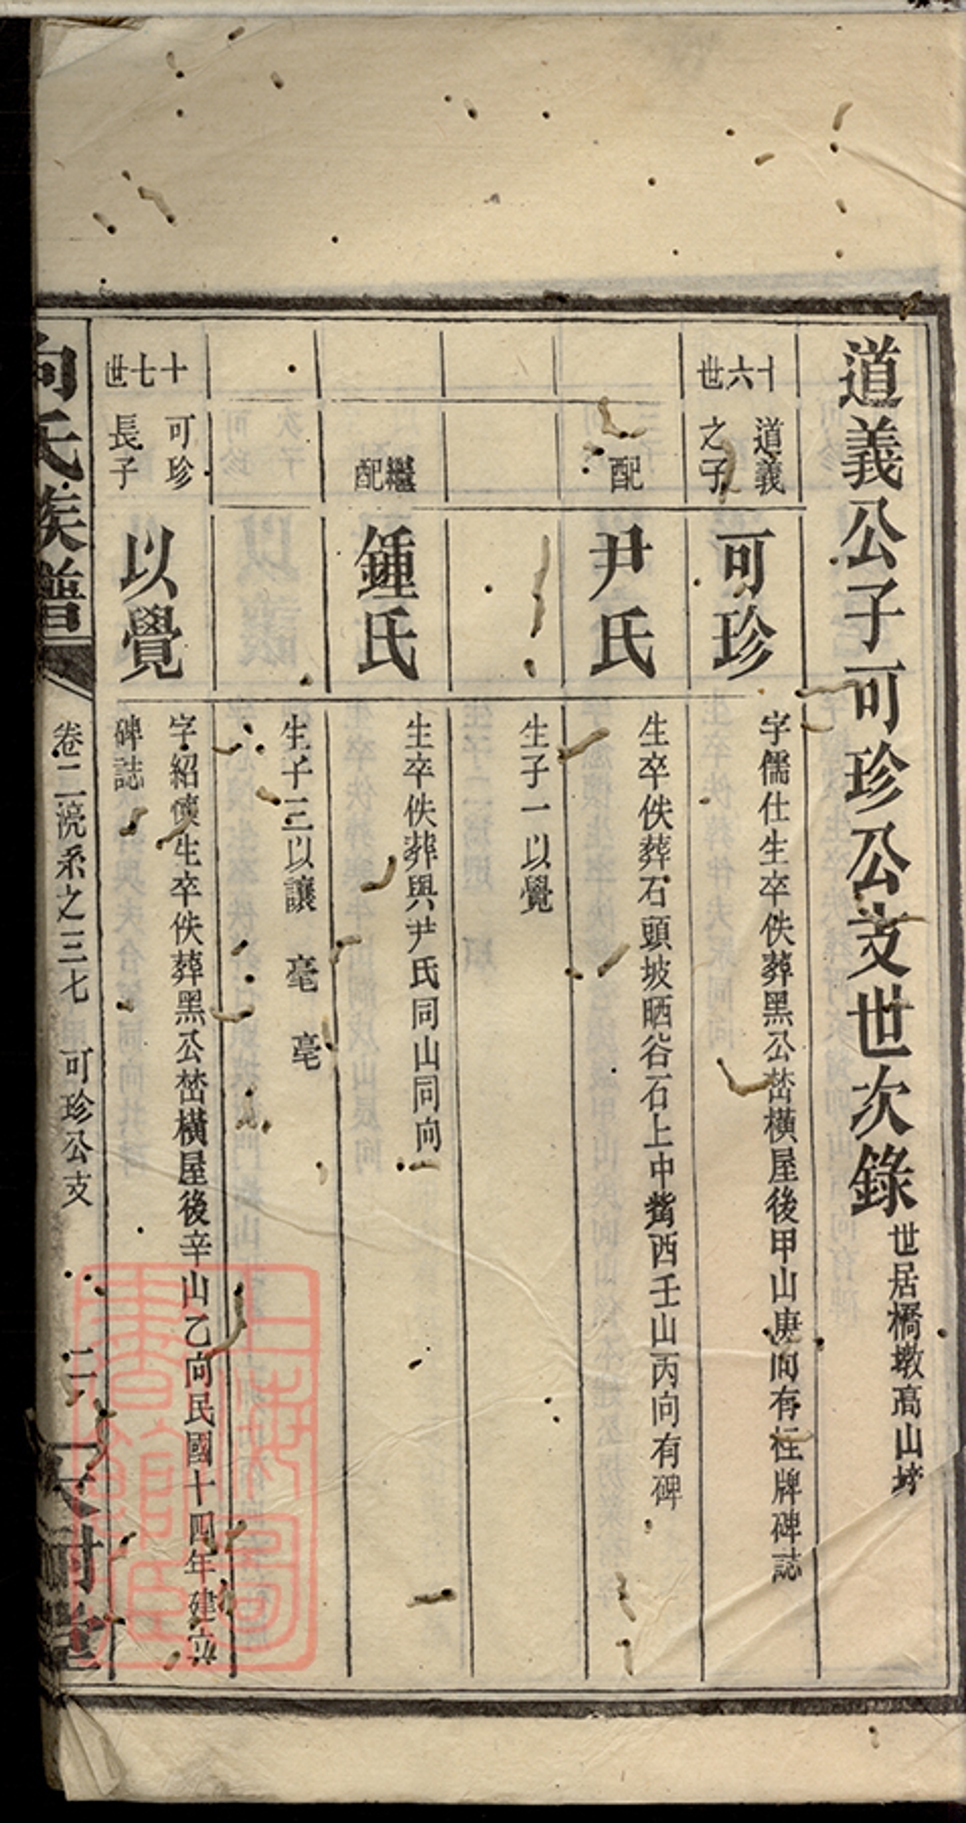 道義公子可珍公支世次錄 世居橋墩高山塝
十六世 道義之子 可珍 字儒仕生卒佚葬黑公嵆橫屋後甲山庚向有柱牌碑誌
配 尹氏 生卒佚葬石頭坡晒谷石上中觜西壬山丙向有碑
生子一以覺
繼配 鍾氏 生卒佚葬與尹氏同山同向
生子三以讓 毫 亳
十七世 可珍長子 以覺 字紹懷生卒佚葬黑公嵆橫屋後辛山乙向民國十四年建立
碑誌
向氏族譜 卷二 系之三七 可珍公支 堂
上海圖書館藏